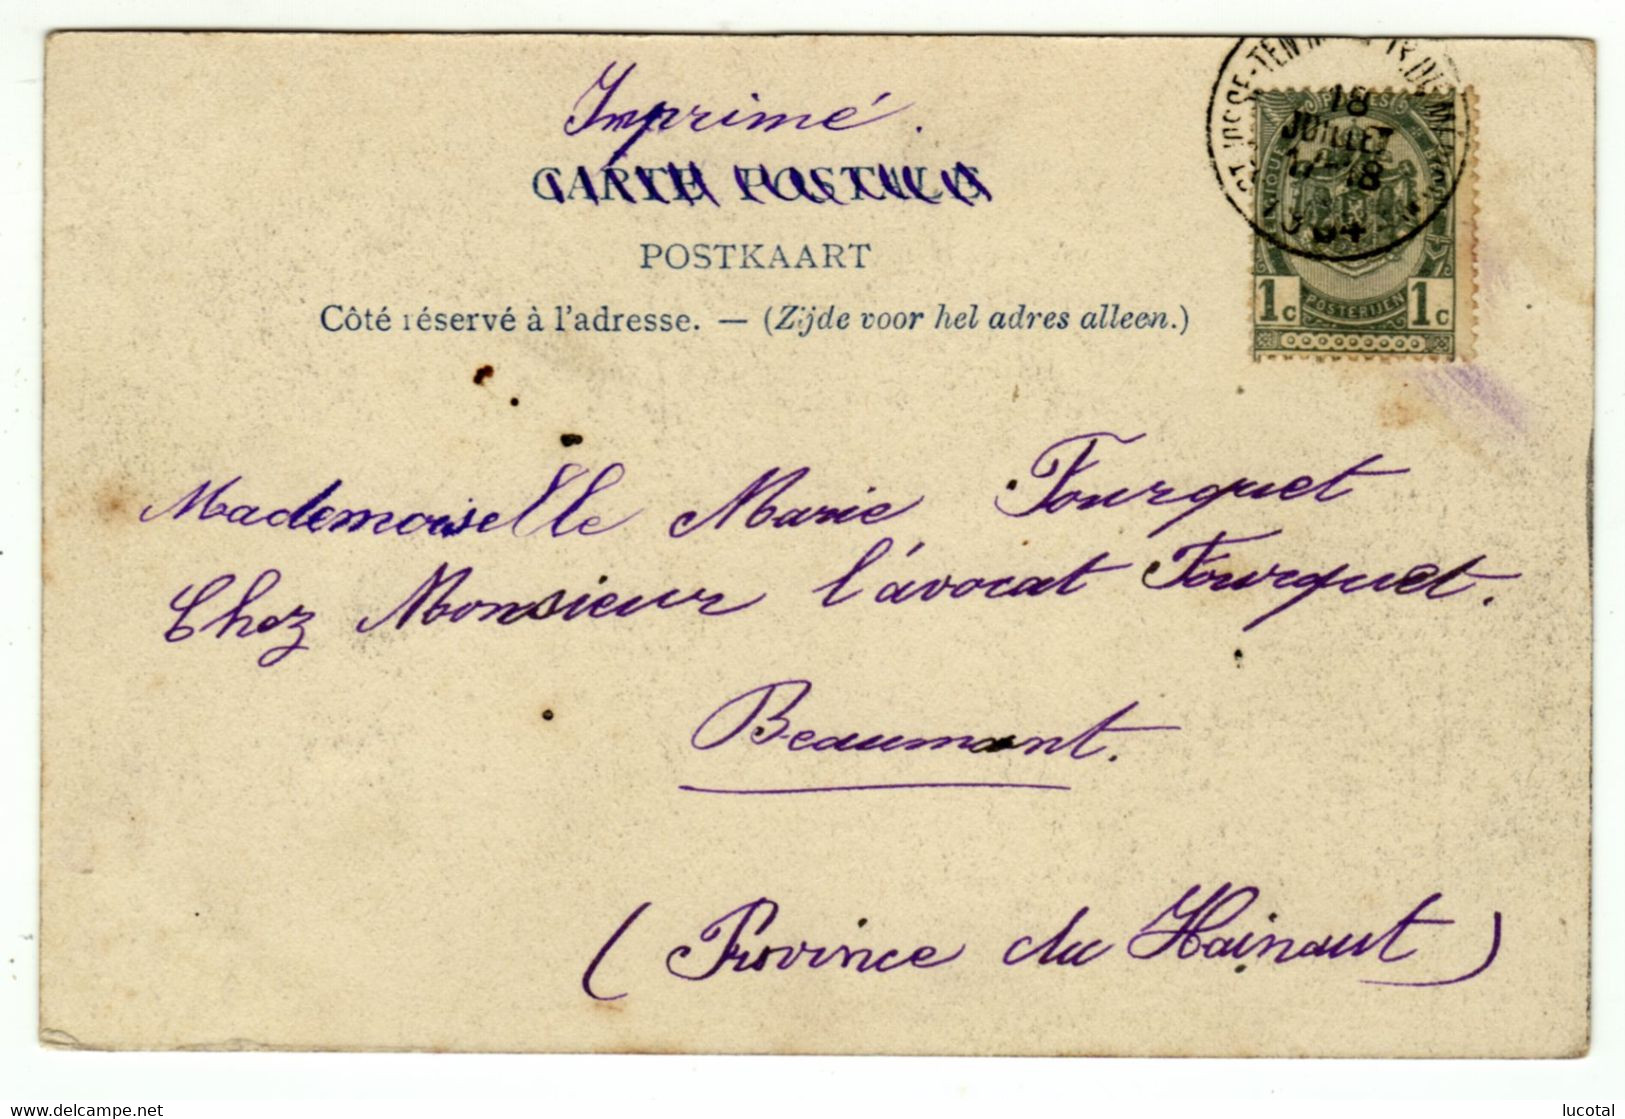 Imprimé.
CARTE POSTALE
POSTKAART
Côté réservé à l'adresse. — (Zijde voor hel adres alleen.)
18
JUILLET
1c POSTERIJEN 1c
Mademoiselle Marie Fourquet
Chez Monsieur l'avocat Fourquet.
Beaumont.
(Province du Hainaut)
delcampe.net
lucotal